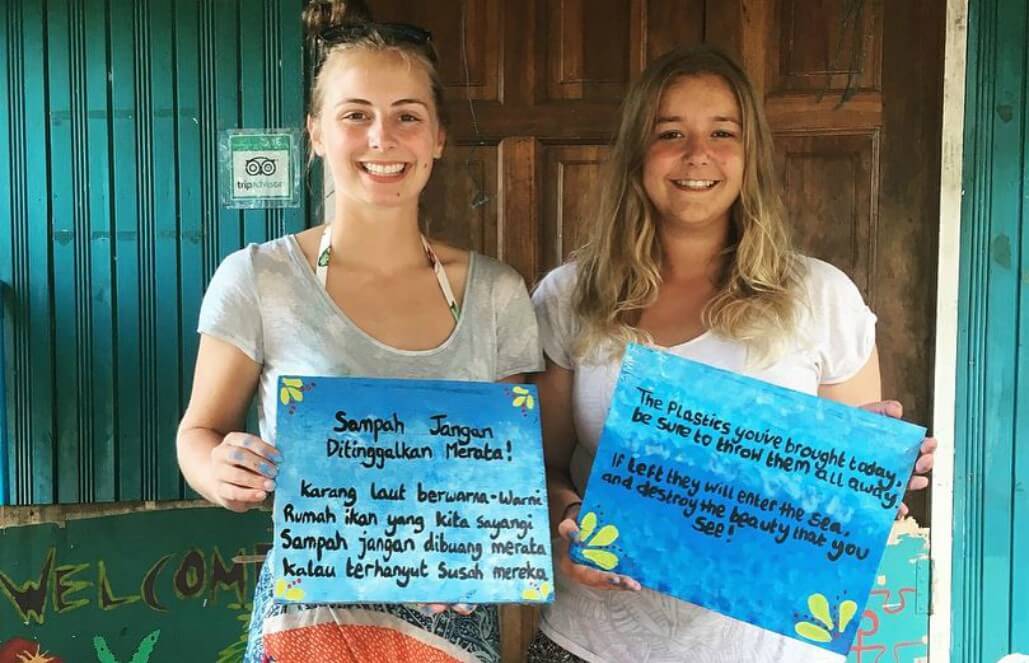 tripadvisor
Sampah Jangan
Ditinggalkan Merata!
Karang laut berwarna-Warni
Rumah ikan yang kita sayangi
Sampah jangan dibuang merata
Kalau terhanyut Susah mereka
The Plastics you've brought today,
be sure to throw them all away,
If Left they will enter the Sea,
and destroy the beauty that you
See!
WELCOME